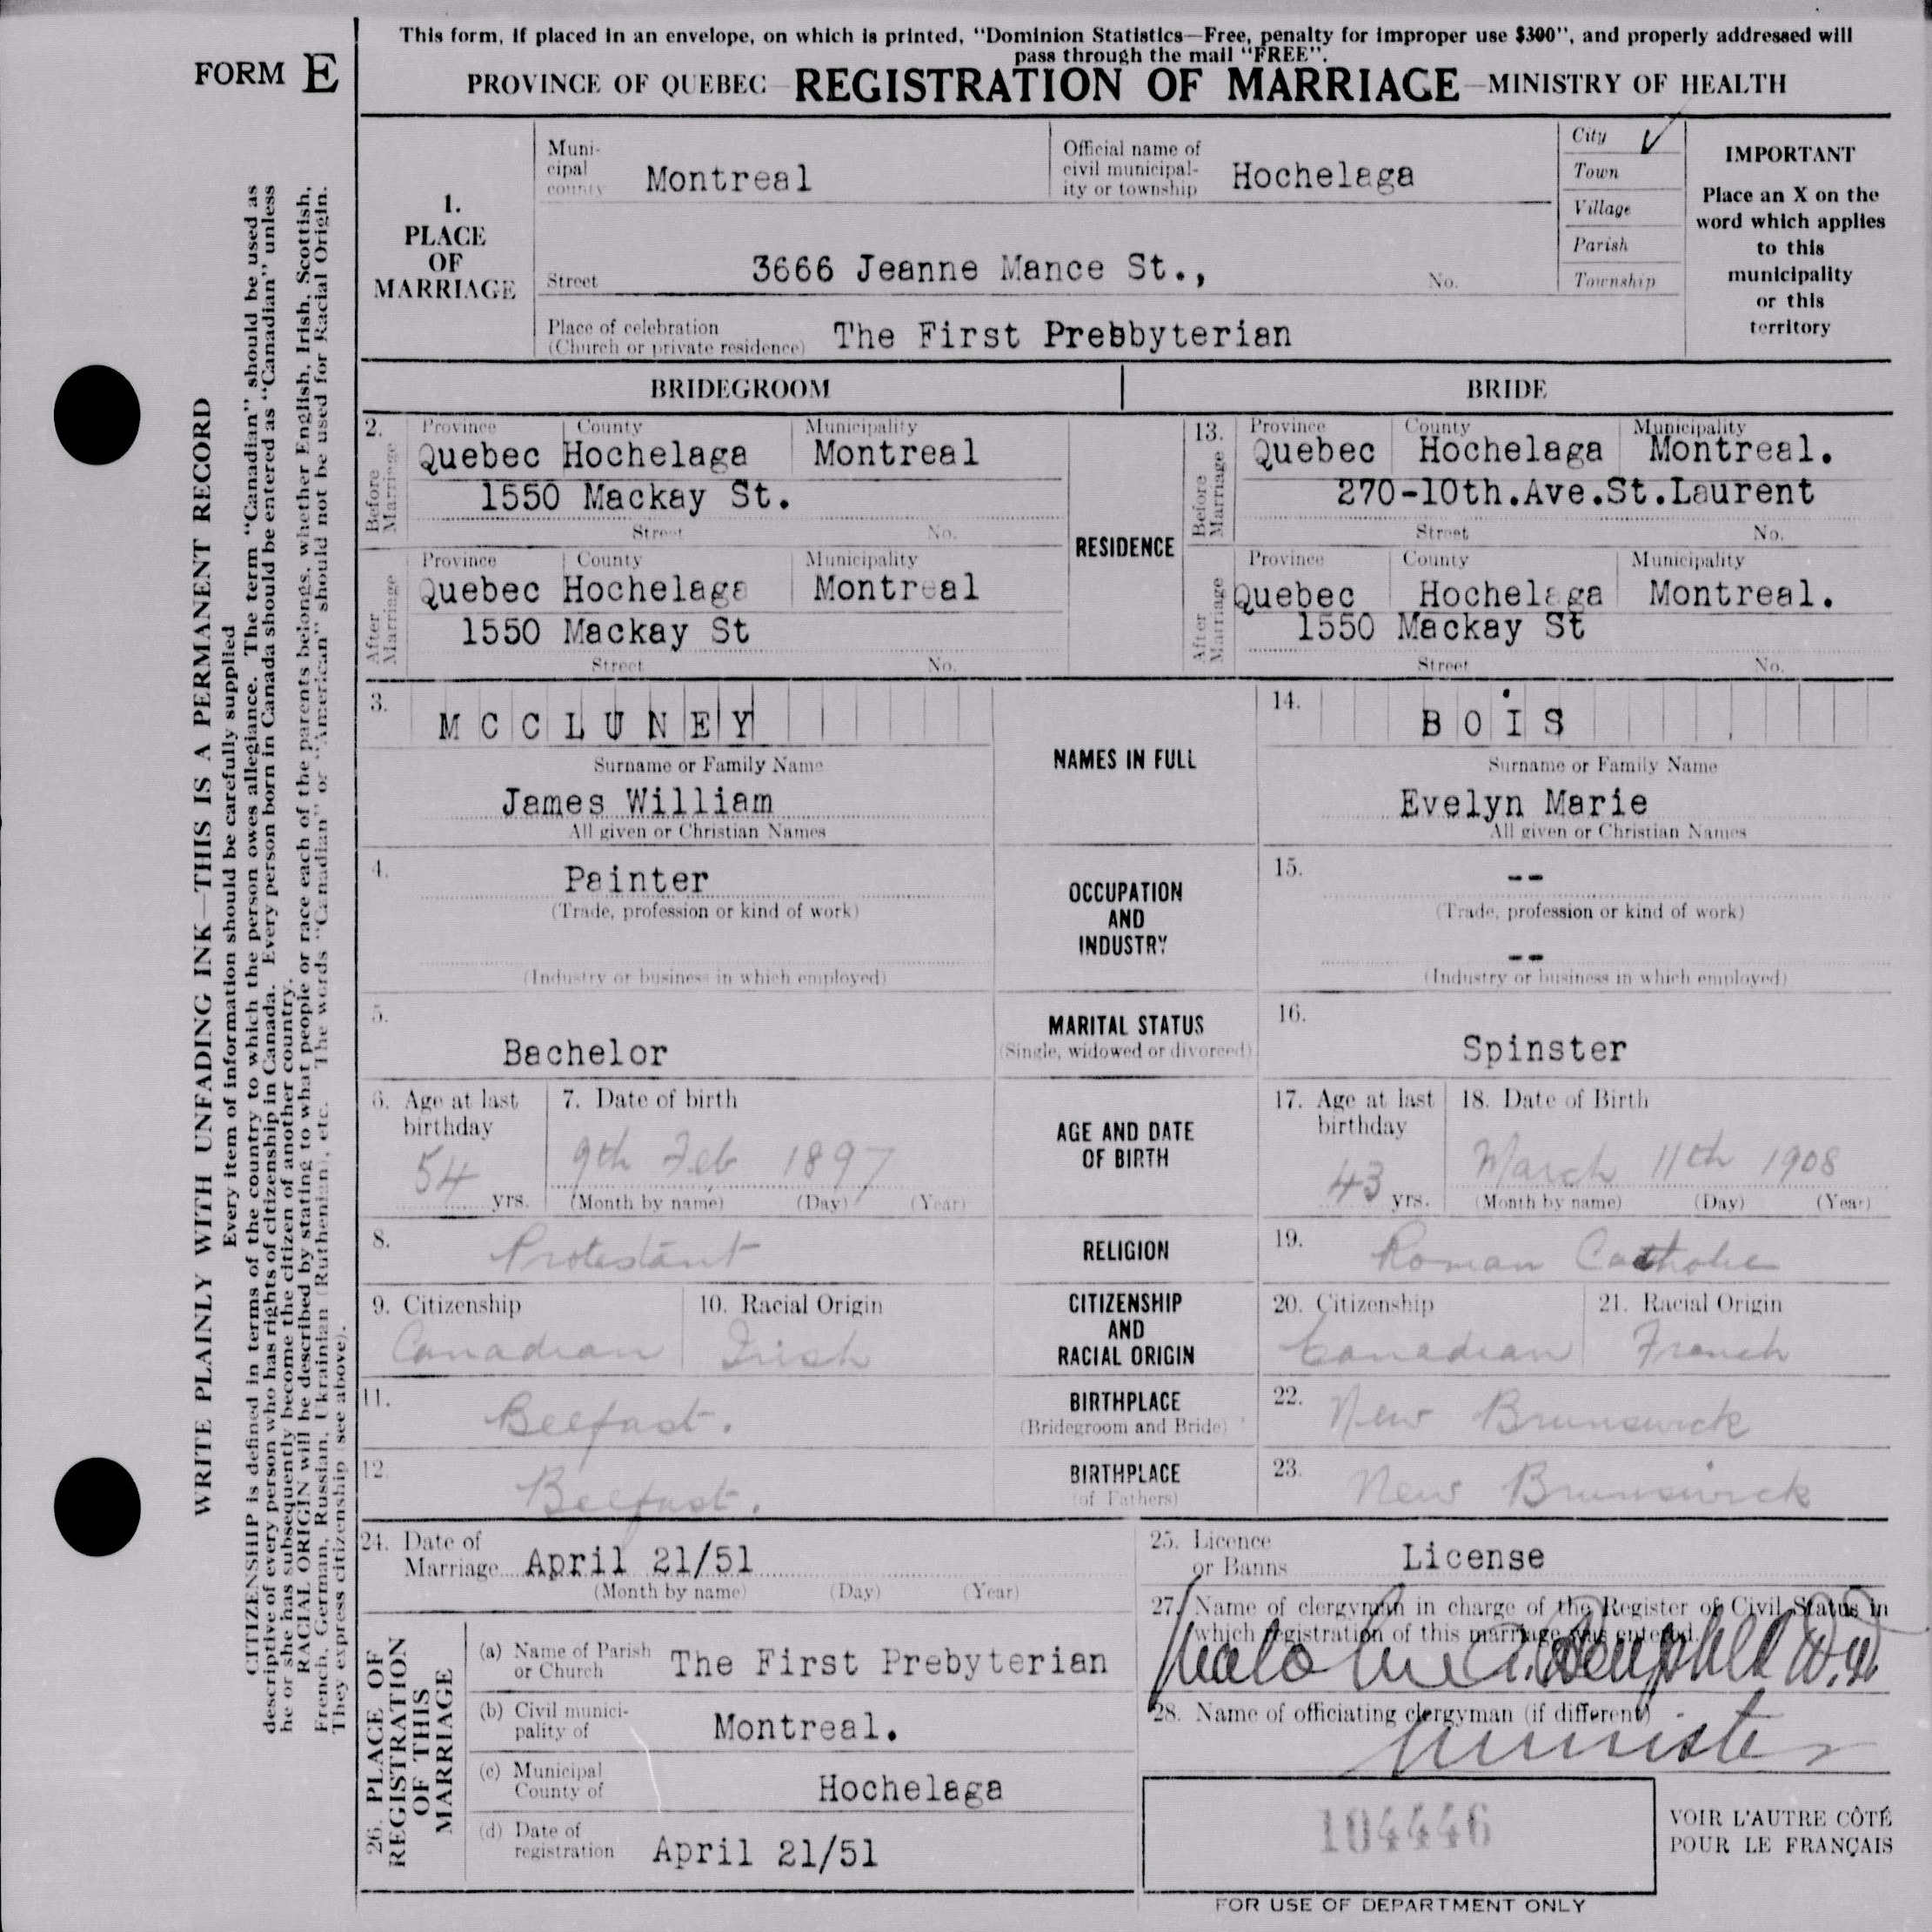 This form, if placed in an envelope, on which is printed, "Dominion Statistics—Free, penalty for improper use $300", and properly addressed will
pass through the mail "FREE".
FORM E
PROVINCE OF QUEBEC—REGISTRATION OF MARRIAGE—MINISTRY OF HEALTH
WRITE PLAINLY WITH UNFADING INK—THIS IS A PERMANENT RECORD
Every item of information should be carefully supplied
CITIZENSHIP is defined in terms of the country to which the person owes allegiance. The term "Canadian" should be used as
descriptive of every person who has rights of citizenship in Canada. Every person born in Canada should be entered as "Canadian" unless
he or she has subsequently become the citizen of another country.
RACIAL ORIGIN will be described by stating to what people or race each of the parents belongs, whether English, Irish, Scottish,
French, German, Russian, Ukrainian (Ruthenian), etc. The words "Canadian" or "American" should not be used for Racial Origin.
They express citizenship (see above).
1.
PLACE
OF
MARRIAGE
Muni-
cipal
county
Montreal
Official name of
civil municipal-
ity or township
Hochelaga
City ✓
Town
Village
Parish
Township
IMPORTANT
Place an X on the
word which applies
to this
municipality
or this
territory
Street 3666 Jeanne Mance St., No.
Place of celebration
(Church or private residence)
The First Presbyterian
BRIDEGROOM BRIDE
2. Before Marriage
Province County Municipality
Quebec Hochelaga Montreal
1550 Mackay St.
Street No.
After Marriage
Province County Municipality
Quebec Hochelaga Montreal
1550 Mackay St
Street No.
RESIDENCE
13. Before Marriage
Province County Municipality
Quebec Hochelaga Montreal.
270-10th.Ave.St.Laurent
Street No.
After Marriage
Province County Municipality
Quebec Hochelaga Montreal.
1550 Mackay St
Street No.
3. MCCLUNEY
Surname or Family Name
James William
All given or Christian Names
NAMES IN FULL
14. BOIS
Surname or Family Name
Evelyn Marie
All given or Christian Names
4. Painter
(Trade, profession or kind of work)
(Industry or business in which employed)
OCCUPATION
AND
INDUSTRY
15. --
(Trade, profession or kind of work)
--
(Industry or business in which employed)
5. Bachelor
MARITAL STATUS
(Single, widowed or divorced)
16. Spinster
6. Age at last
birthday
54 yrs.
7. Date of birth
9th Feb 1897
(Month by name) (Day) (Year)
AGE AND DATE
OF BIRTH
17. Age at last
birthday
43 yrs.
18. Date of Birth
March 11th 1908
(Month by name) (Day) (Year)
8. Protestant
RELIGION
19. Roman Catholic
9. Citizenship
Canadian
10. Racial Origin
Irish
CITIZENSHIP
AND
RACIAL ORIGIN
20. Citizenship
Canadian
21. Racial Origin
French
11. Belfast.
BIRTHPLACE
(Bridegroom and Bride)
22. New Brunswick
12. Belfast.
BIRTHPLACE
(of Fathers)
23. New Brunswick
24. Date of
Marriage April 21/51
(Month by name) (Day) (Year)
25. Licence
or Banns
License
26. PLACE OF
REGISTRATION
OF THIS
MARRIAGE
(a) Name of Parish
or Church
The First Prebyterian
(b) Civil munici-
pality of
Montreal.
(c) Municipal
County of
Hochelaga
(d) Date of
registration
April 21/51
27. Name of clergyman in charge of the Register of Civil Status in
which registration of this marriage was entered.
28. Name of officiating clergyman (if different)
Minister
104446
FOR USE OF DEPARTMENT ONLY
VOIR L'AUTRE CÔTÉ
POUR LE FRANÇAIS